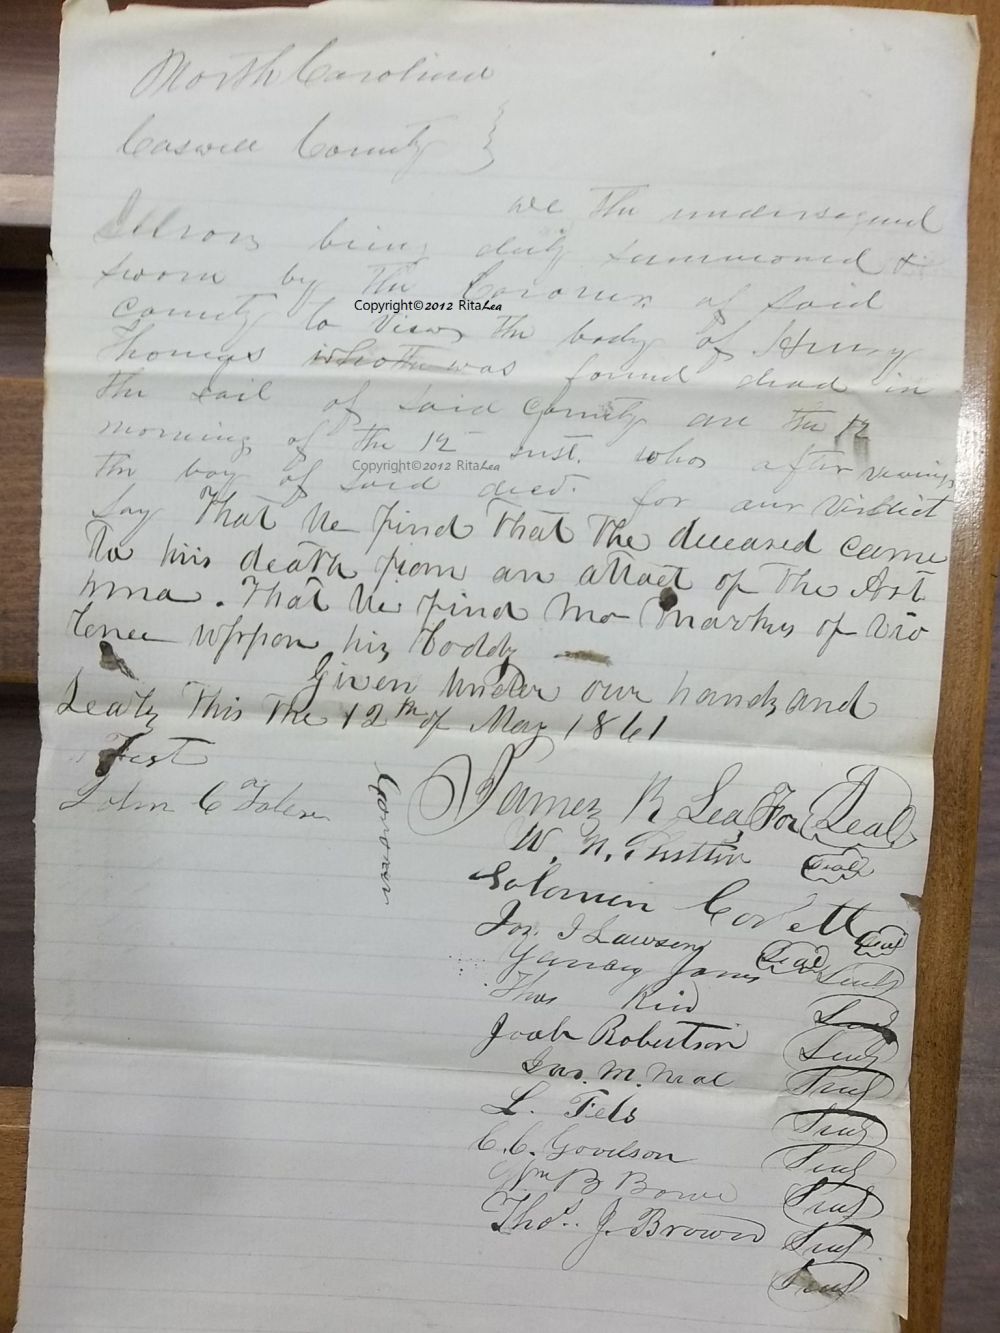 North Carolina
Caswell County }
we the undersigned
Jurors being duly summoned &
sworn by the Coroner of said
Copyright©2012 RitaLea
county to view the body of Henry
Thomas who was found dead in
the Jail of said County on the 12
morning of the 12 inst. who after viewing
Copyright©2012 RitaLea
the boy of said decd. for our Virdict
Say That We find That The deceased came
To his death from an attact of The Ast
hma. That We find no markes of Vio
lence uppon his boddy
Given Under our hands and
Seals This The 12th of May 1861
Test
John C
Coroner
James R Lea For Seal
W. N. Seal
Solomon Corbett Seal
Jos. J Lawson Seal
Yancey Jones Seal
Thos Seal
Joab Robertson Seal
Jas. M. Neal Seal
L. Fels Seal
C. C. Goodson Seal
Wm B Bowe Seal
Thos. J. Brown Seal
Seal